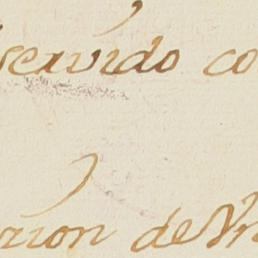 servido co
rion de Vn